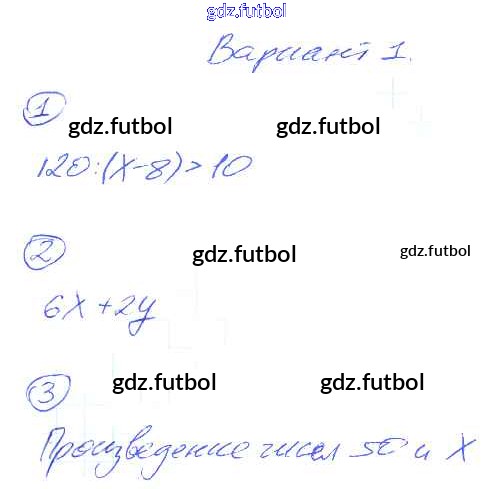 gdz.futbol
Вариант 1.
1
gdz.futbol gdz.futbol
120:(x-8)>10
2
gdz.futbol gdz.futbol
6x+2y
3
gdz.futbol gdz.futbol
Произведение чисел 50 и x